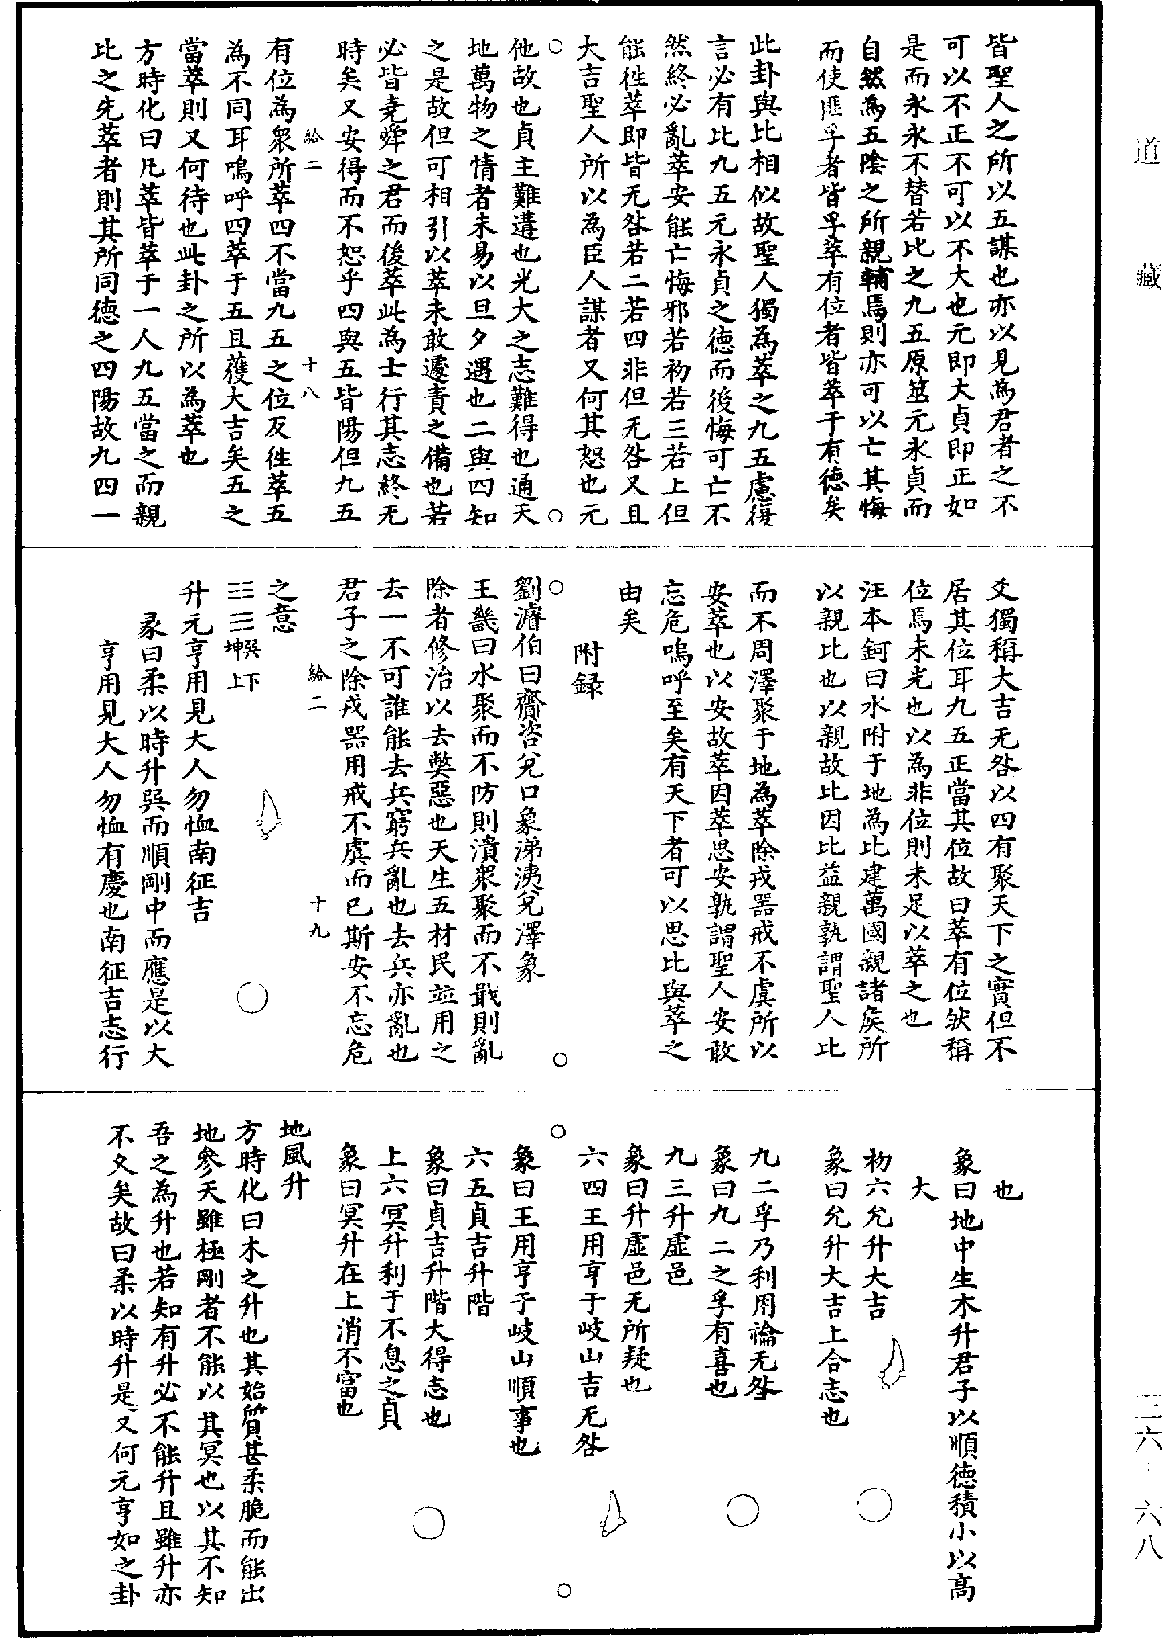 道藏
皆聖人之所以五謀也亦以見為君者之不
可以不正不可以不大也元即大貞即正如
是而永永不替若比之九五原筮元永貞而
自然為五陰之所親輔焉則亦可以亡其悔
而使匪孚者皆孚萃有位者皆萃于有德矣
此卦與比相似故聖人獨為萃之九五慮復
言必有比九五元永貞之德而後悔可亡不
然終必亂萃安能亡悔邪若初若三若上但
能徃萃即皆无咎若二若四非但无咎又且
大吉聖人所以為臣人謀者又何其恕也元
他故也貞主難遘也光大之志難得也通天
地萬物之情者未易以旦夕遇也二與四知
之是故但可相引以萃未敢遽責之備也若
必皆堯舜之君而後萃此為士行其志終无
時矣又安得而不恕乎四與五皆陽但九五
給二 十八
有位為衆所萃四不當九五之位反徃萃五
為不同耳嗚呼四萃于五且獲大吉矣五之
當萃則又何待也此卦之所以為萃也
方時化曰凡萃皆萃于一人九五當之而親
比之先萃者則其所同德之四陽故九四一
爻獨稱大吉无咎以四有聚天下之實但不
居其位耳九五正當其位故曰萃有位然稱
位焉未光也以為非位則未足以萃之也
汪本鈳曰水附于地為比建萬國親諸矦所
以親比也以親故比因比益親孰謂聖人比
而不周澤聚于地為萃除戎器戒不虞所以
安萃也以安故萃因萃思安孰謂聖人安敢
忘危嗚呼至矣有天下者可以思比與萃之
由矣
附録
劉濬伯曰齎咨兌口象涕洟兌澤象
王畿曰水聚而不防則潰衆聚而不戢則亂
除者修治以去獘惡也天生五材民並用之
去一不可誰能去兵窮兵亂也去兵亦亂也
君子之除戎器用戒不虞而已斯安不忘危
給二 十九
之意
☷☴ 巽下坤上
升元亨用見大人勿恤南征吉
彖曰柔以時升巽而順剛中而應是以大
亨用見大人勿恤有慶也南征吉志行
也
象曰地中生木升君子以順德積小以高
大
初六允升大吉
象曰允升大吉上合志也
九二孚乃利用禴无咎
象曰九二之孚有喜也
九三升虛邑
象曰升虛邑无所疑也
六四王用亨于岐山吉无咎
象曰王用亨于岐山順事也
六五貞吉升階
象曰貞吉升階大得志也
上六冥升利于不息之貞
象曰冥升在上消不富也
地風升
方時化曰木之升也其始質甚柔脆而能出
地參天雖極剛者不能以其冥也以其不知
吾之為升也若知有升必不能升且雖升亦
不久矣故曰柔以時升是又何元亨如之卦
三六·六八